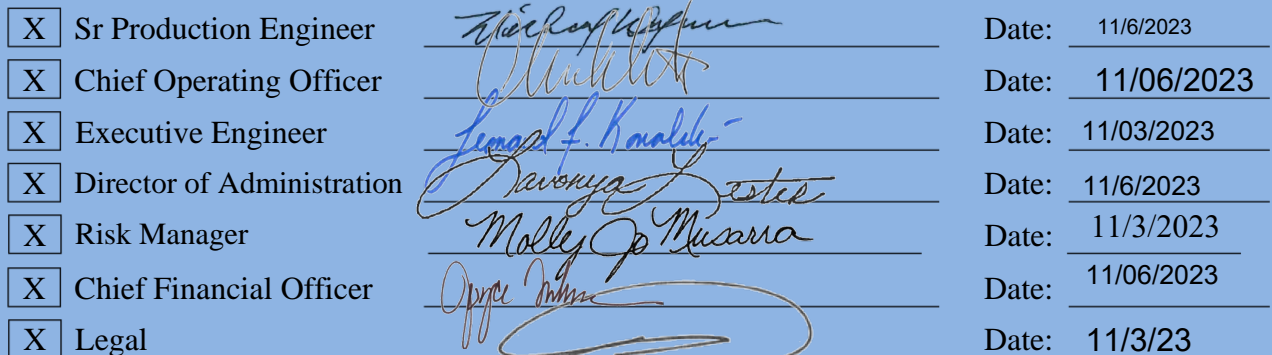 X Sr Production Engineer Date: 11/6/2023
X Chief Operating Officer Date: 11/06/2023
X Executive Engineer Date: 11/03/2023
X Director of Administration Lavonya Lester Date: 11/6/2023
X Risk Manager Molly Jo Musarra Date: 11/3/2023
X Chief Financial Officer Joyce Date: 11/06/2023
X Legal Date: 11/3/23